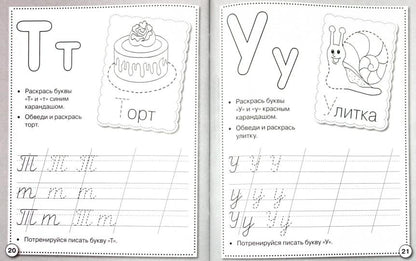 Т т
Торт
• Раскрась буквы
«Т» и «т» синим
карандашом.
• Обведи и раскрась
торт.
Т Т Т
т т т
Тт Тт
• Потренируйся писать букву «Т».
20
У у
Улитка
• Раскрась буквы
«У» и «у» красным
карандашом.
• Обведи и раскрась
улитку.
У У У
у у у
Уу Уу
• Потренируйся писать букву «У».
21